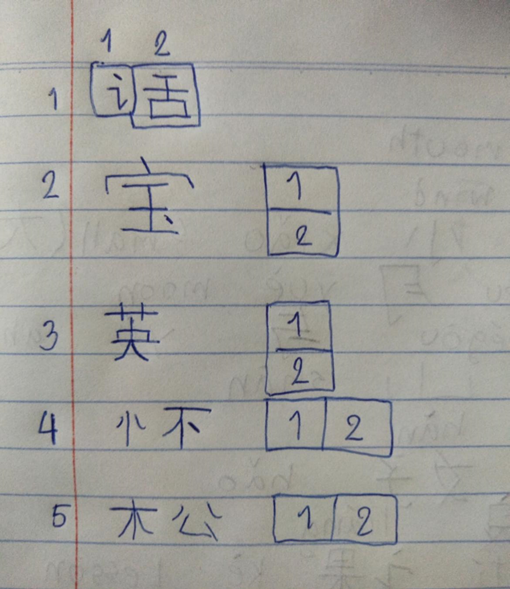 1 2
1 话
2 宝 1
2
3 英 1
2
4 忄不 1 2
5 木公 1 2